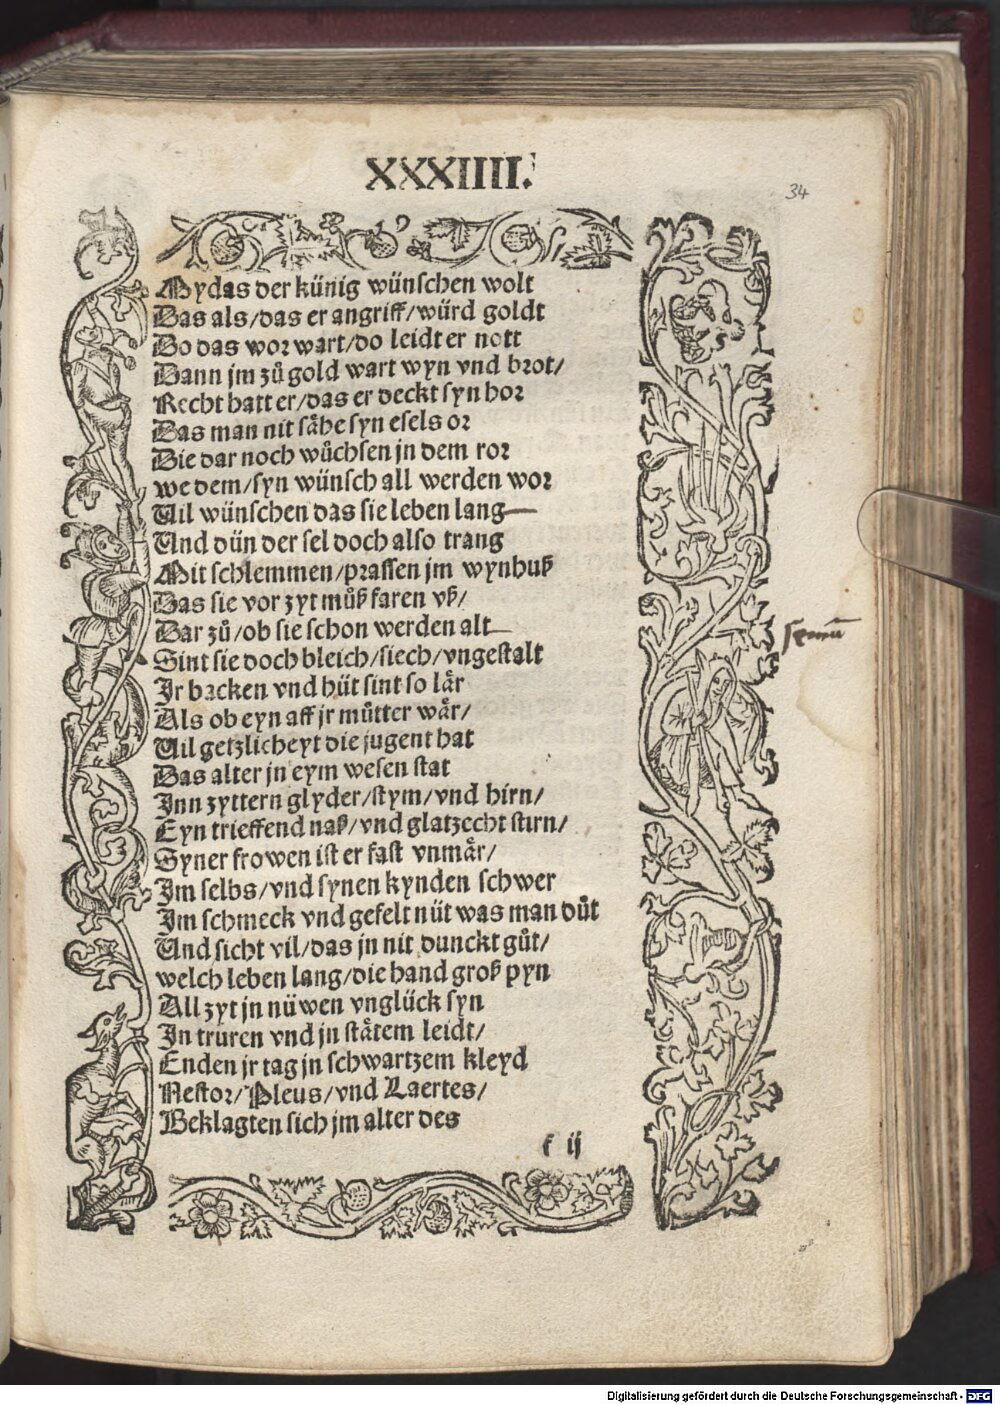 XXXIIII.
34
Mydas der künig wünschen wolt
Das als/das er angriff/würd goldt
Do das wor wart/do leidt er nott
Dann jm zů gold wart wyn vnd brot/
Recht hatt er/das er deckt syn hor
Das man nit sähe syn esels or
Die dar noch wůchsen jn dem ror
we dem/syn wünsch all werden wor
Uil wünschen das sie leben lang
Und dün der sel doch also trang
Mit schlemmen/prassen jm wynhuß
Das sie vor zyt můß faren vß/
Dar zů/ob sie schon werden alt
Sint sie doch bleich/siech/vngestalt
Jr backen vnd hüt sint so lär
Als ob eyn aff jr můtter wär/
Uil getzlicheyt die jugent hat
Das alter jn eym wesen stat
Jnn zyttern glyder/stym/vnd hirn/
Eyn trieffend naß/vnd glatzecht stirn/
Syner frowen ist er fast vnmär/
Jm selbs/vnd synen kynden schwer
Jm schmeck vnd gefelt nüt was man důt
Und sicht vil/das jn nit dunckt gůt/
welch leben lang/die hand groß pyn
All zyt jn nüwen vnglück syn
Jn truren vnd jn stätem leidt/
Enden jr tag jn schwartzem kleyd
Nestor/Pleus/vnd Laertes/
Beklagten sich jm alter des
f ij
Digitalisierung gefördert durch die Deutsche Forschungsgemeinschaft - DFG